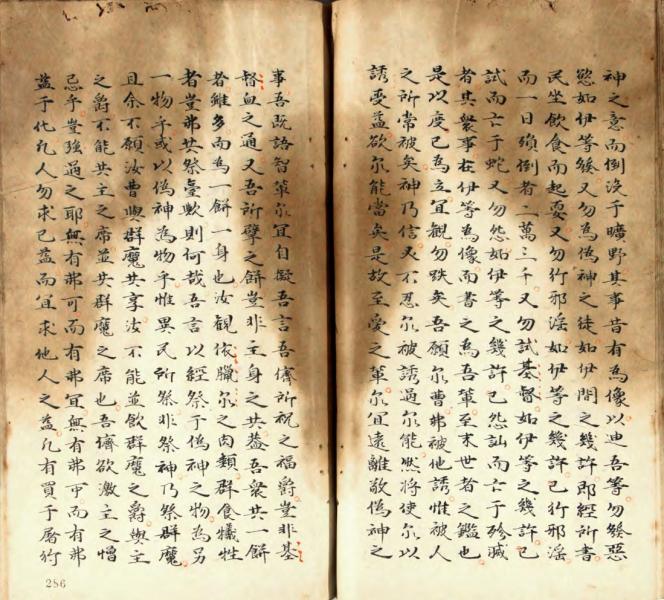 神之意而倒沒于曠野其事昔有為像以迪吾等勿發惡
慾如伊等發又勿為偽神之徒如伊間之幾許即經所書
民坐飲食而起耍又勿行邪淫如伊等之幾許已行邪淫
而一日殞倒者二萬三千又勿試基督如伊等之幾許已
試而亡于蛇又勿怨如伊等之幾許已怨訕而亡于殄滅
者其衆事在伊等為像而書之為吾輩至末世者之鑑也
是以度已為立宜觀勿跌矣吾願尔曹弗被他誘惟被人
之所常被矣神乃信又不忍尔被誘過尔能然將使尔以
誘受益欲尔能當矣是故至愛之輩尔宜遠離敬偽神之
事吾既語智輩尔宜自擬吾言吾儕所祝之福爵豈非基
督血之通又吾所擘之餅豈非主身之共益吾衆共一餅
者雖多而為一餅一身也汝觀依臘尔之肉類群食犧牲
者豈弗共祭臺歟則何哉吾言以經祭于偽神之物為另
一物乎或以偽神為物乎惟異民所祭非祭神乃祭群魔
且余不願汝曹與群魔共享汝不能並飲群魔之爵與主
之爵不能共主之席並共群魔之席也吾儕欲激主之憎
忌乎豈強過之耶無有弗可而有弗宜無有弗可而有弗
益于化凡人勿求己益而宜求他人之益凡有買于屠行
286